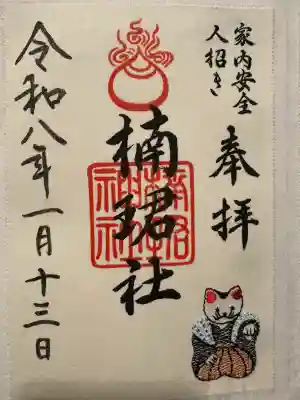 家内安全
人招き
奉拝
楠珺社
令和八年一月十三日